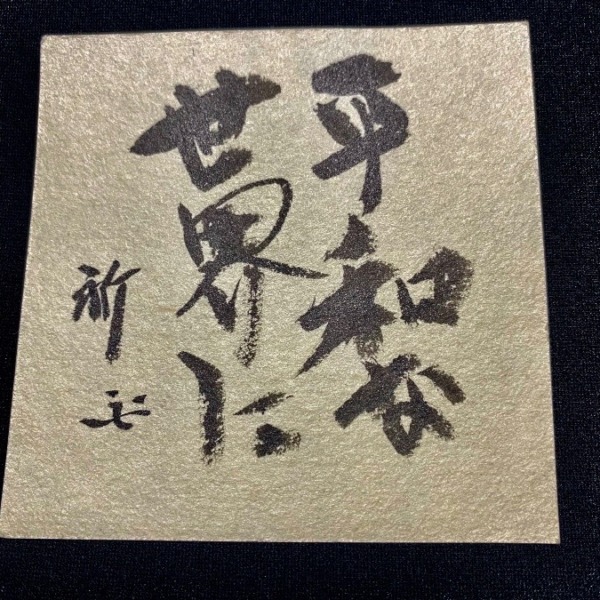 平和な
世界に
祈